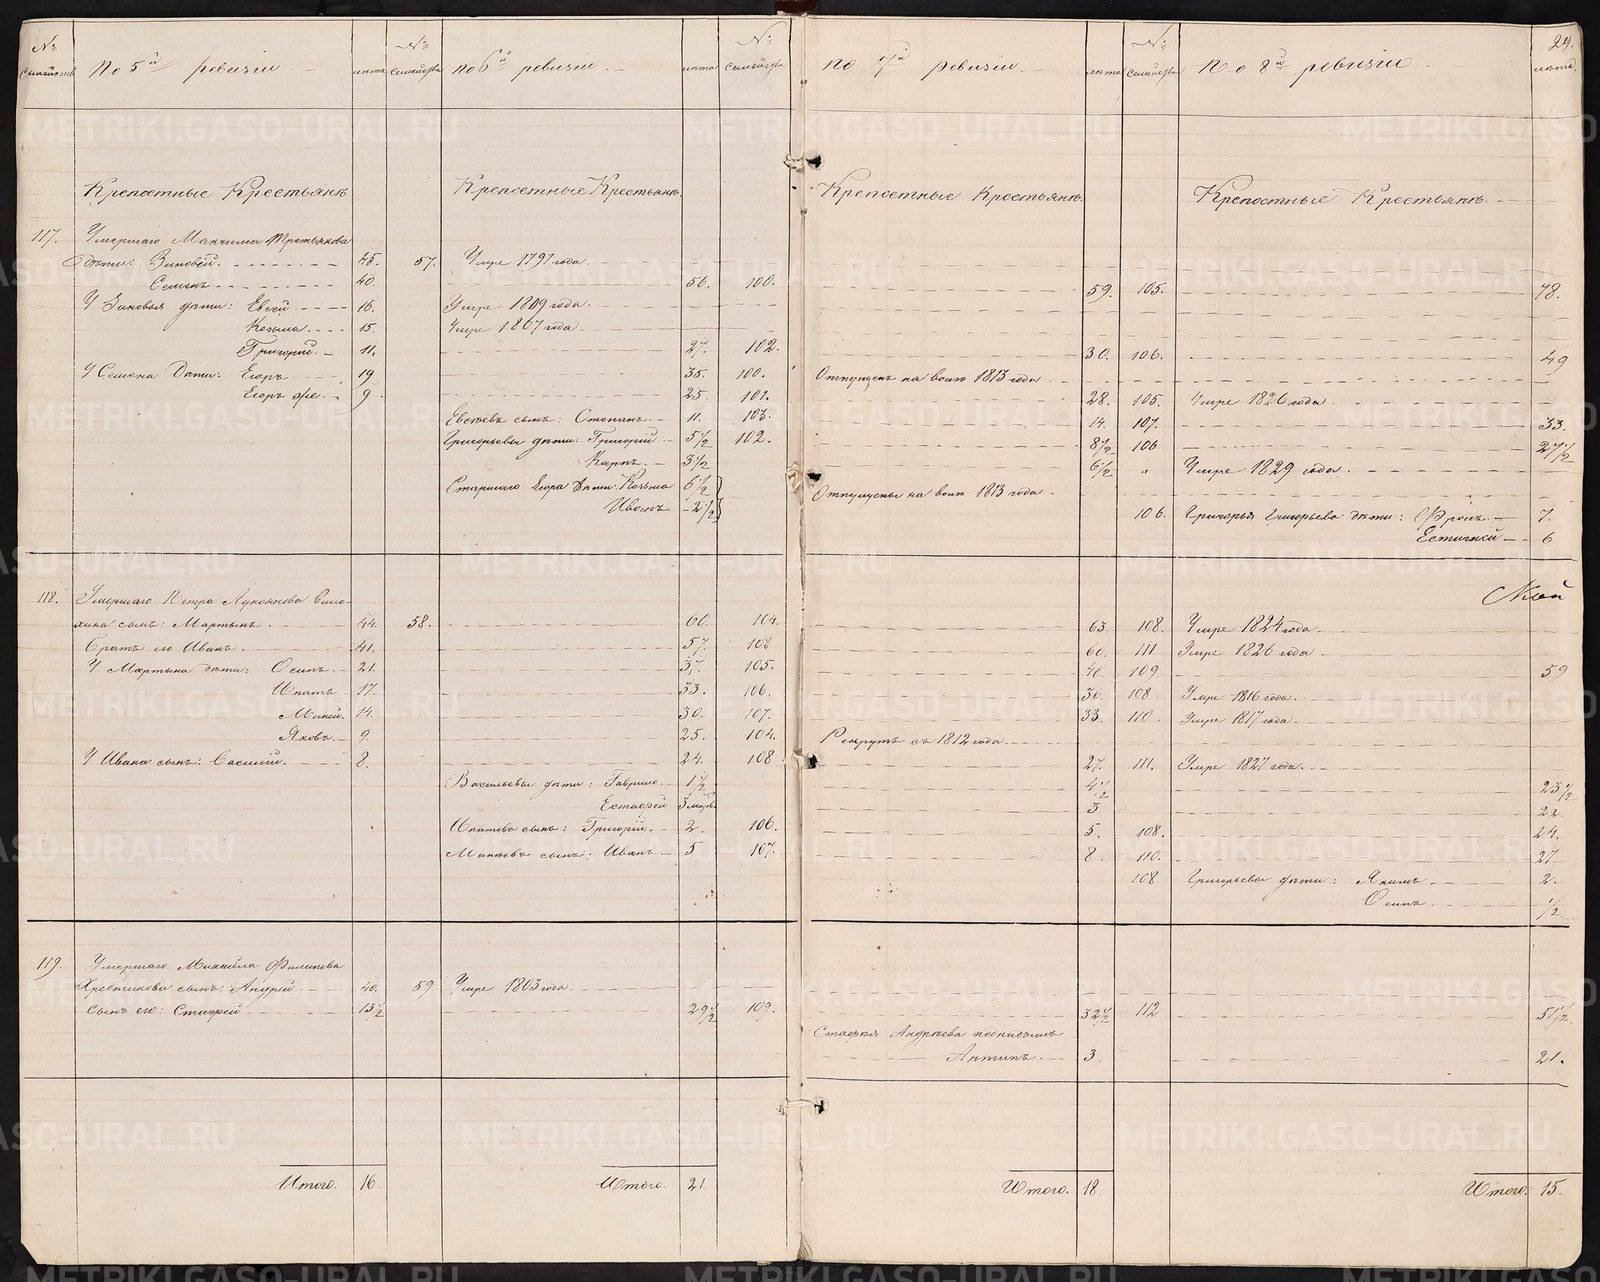 24.
№ семейств По 5й ревизiи лѣта № семейства по 6й ревизiи лѣта № семейства по 7й ревизiи лѣта № семейства По 8й ревизiи лѣта.
Крепостные Крестьянѣ Крепостные Крестьянѣ. Крепостные Крестьянѣ. Крепостные Крестьянѣ.
117. Умершаго Максима Третьякова
дѣти: Зиновей. 45. 57. Умре 1797 года.
Семенъ 40. 56. 100. 59. 105. 78.
У Зиновья дѣти: Евсей 16. Умре 1809 года.
Козьма. 15. Умре 1807 года.
Григорий. 11. 27. 102. 30. 106. 49
У Семена дѣти: Егоръ 19 35. 100. Отпущенъ на волю 1813 года.
Егоръ же. 9. 25. 101. 28. 105. Умре 1826 года.
Евсѣевъ сынъ: Степанъ 11. 103. 14. 107. 33.
Григорьевы дѣти: Григорий 5 1/2 102. 8 1/2 106 27 1/2
Карпъ 3 1/2 6 1/2 " Умре 1829 года.
Старшаго Егора дѣти: Козьма 6 1/2
Иванъ 2 1/2 Отпущены на волю 1813 года.
106. Григорья Григорьева дѣти: Фролъ 7.
Естигней 6
118. Умершаго Петра Лукоянова
сынъ: Мартынъ. 44. 58. 60. 104. 63. 108. Умре 1824 года.
Братъ его Иванъ. 41. 57. 108 60. 111 Умре 1826 года.
У Мартына дѣти: Осипъ 21. 37. 105. 40. 109. 59
Ипатъ 17. 33. 106. 36. 108. Умре 1816 года.
Минѣй. 14. 30. 107. 33. 110. Умре 1817 года.
Яковъ. 9. 25. 104. Рекрутъ съ 1812 года.
У Ивана сынъ: Василий. 8. 24. 108 27. 111. Умре 1827 года.
Васильевы дѣти: Гаврило. 1 1/2 4 1/2 23 1/2
Естафей 3 3 22.
Ипатовъ сынъ: Григорий. 2. 106. 5. 108. 24.
Минѣевъ сынъ: Иванъ 5 107. 8. 110. 27
108 Григорьевы дѣти: Якимъ 2.
Осипъ 1/2
119. Умершаго Михайла Филипова
Хребтикова сынъ: Андрей 40. 59 Умре 1803 года.
сынъ его: Стафей. 13 1/2 29 1/2 109. 32 1/2 112 51 1/2
Стафья Андрѣева
Антипъ 3. 21.
Итого. 16. Итого. 21. Итого. 18. Итого. 15.
METRIKI.GASO-URAL.RU